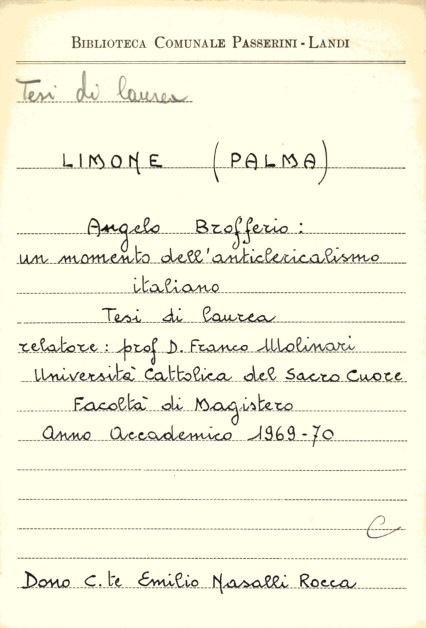 BIBLIOTECA COMUNALE PASSERINI-LANDI
Tesi di laurea
LIMONE (PALMA)
Angelo Brofferio:
un momento dell'anticlericalismo
italiano
Tesi di laurea
relatore: prof D. Franco Molinari
Università Cattolica del Sacro Cuore
Facoltà di Magistero
Anno Accademico 1969-70
C
Dono C.te Emilio Nasalli Rocca